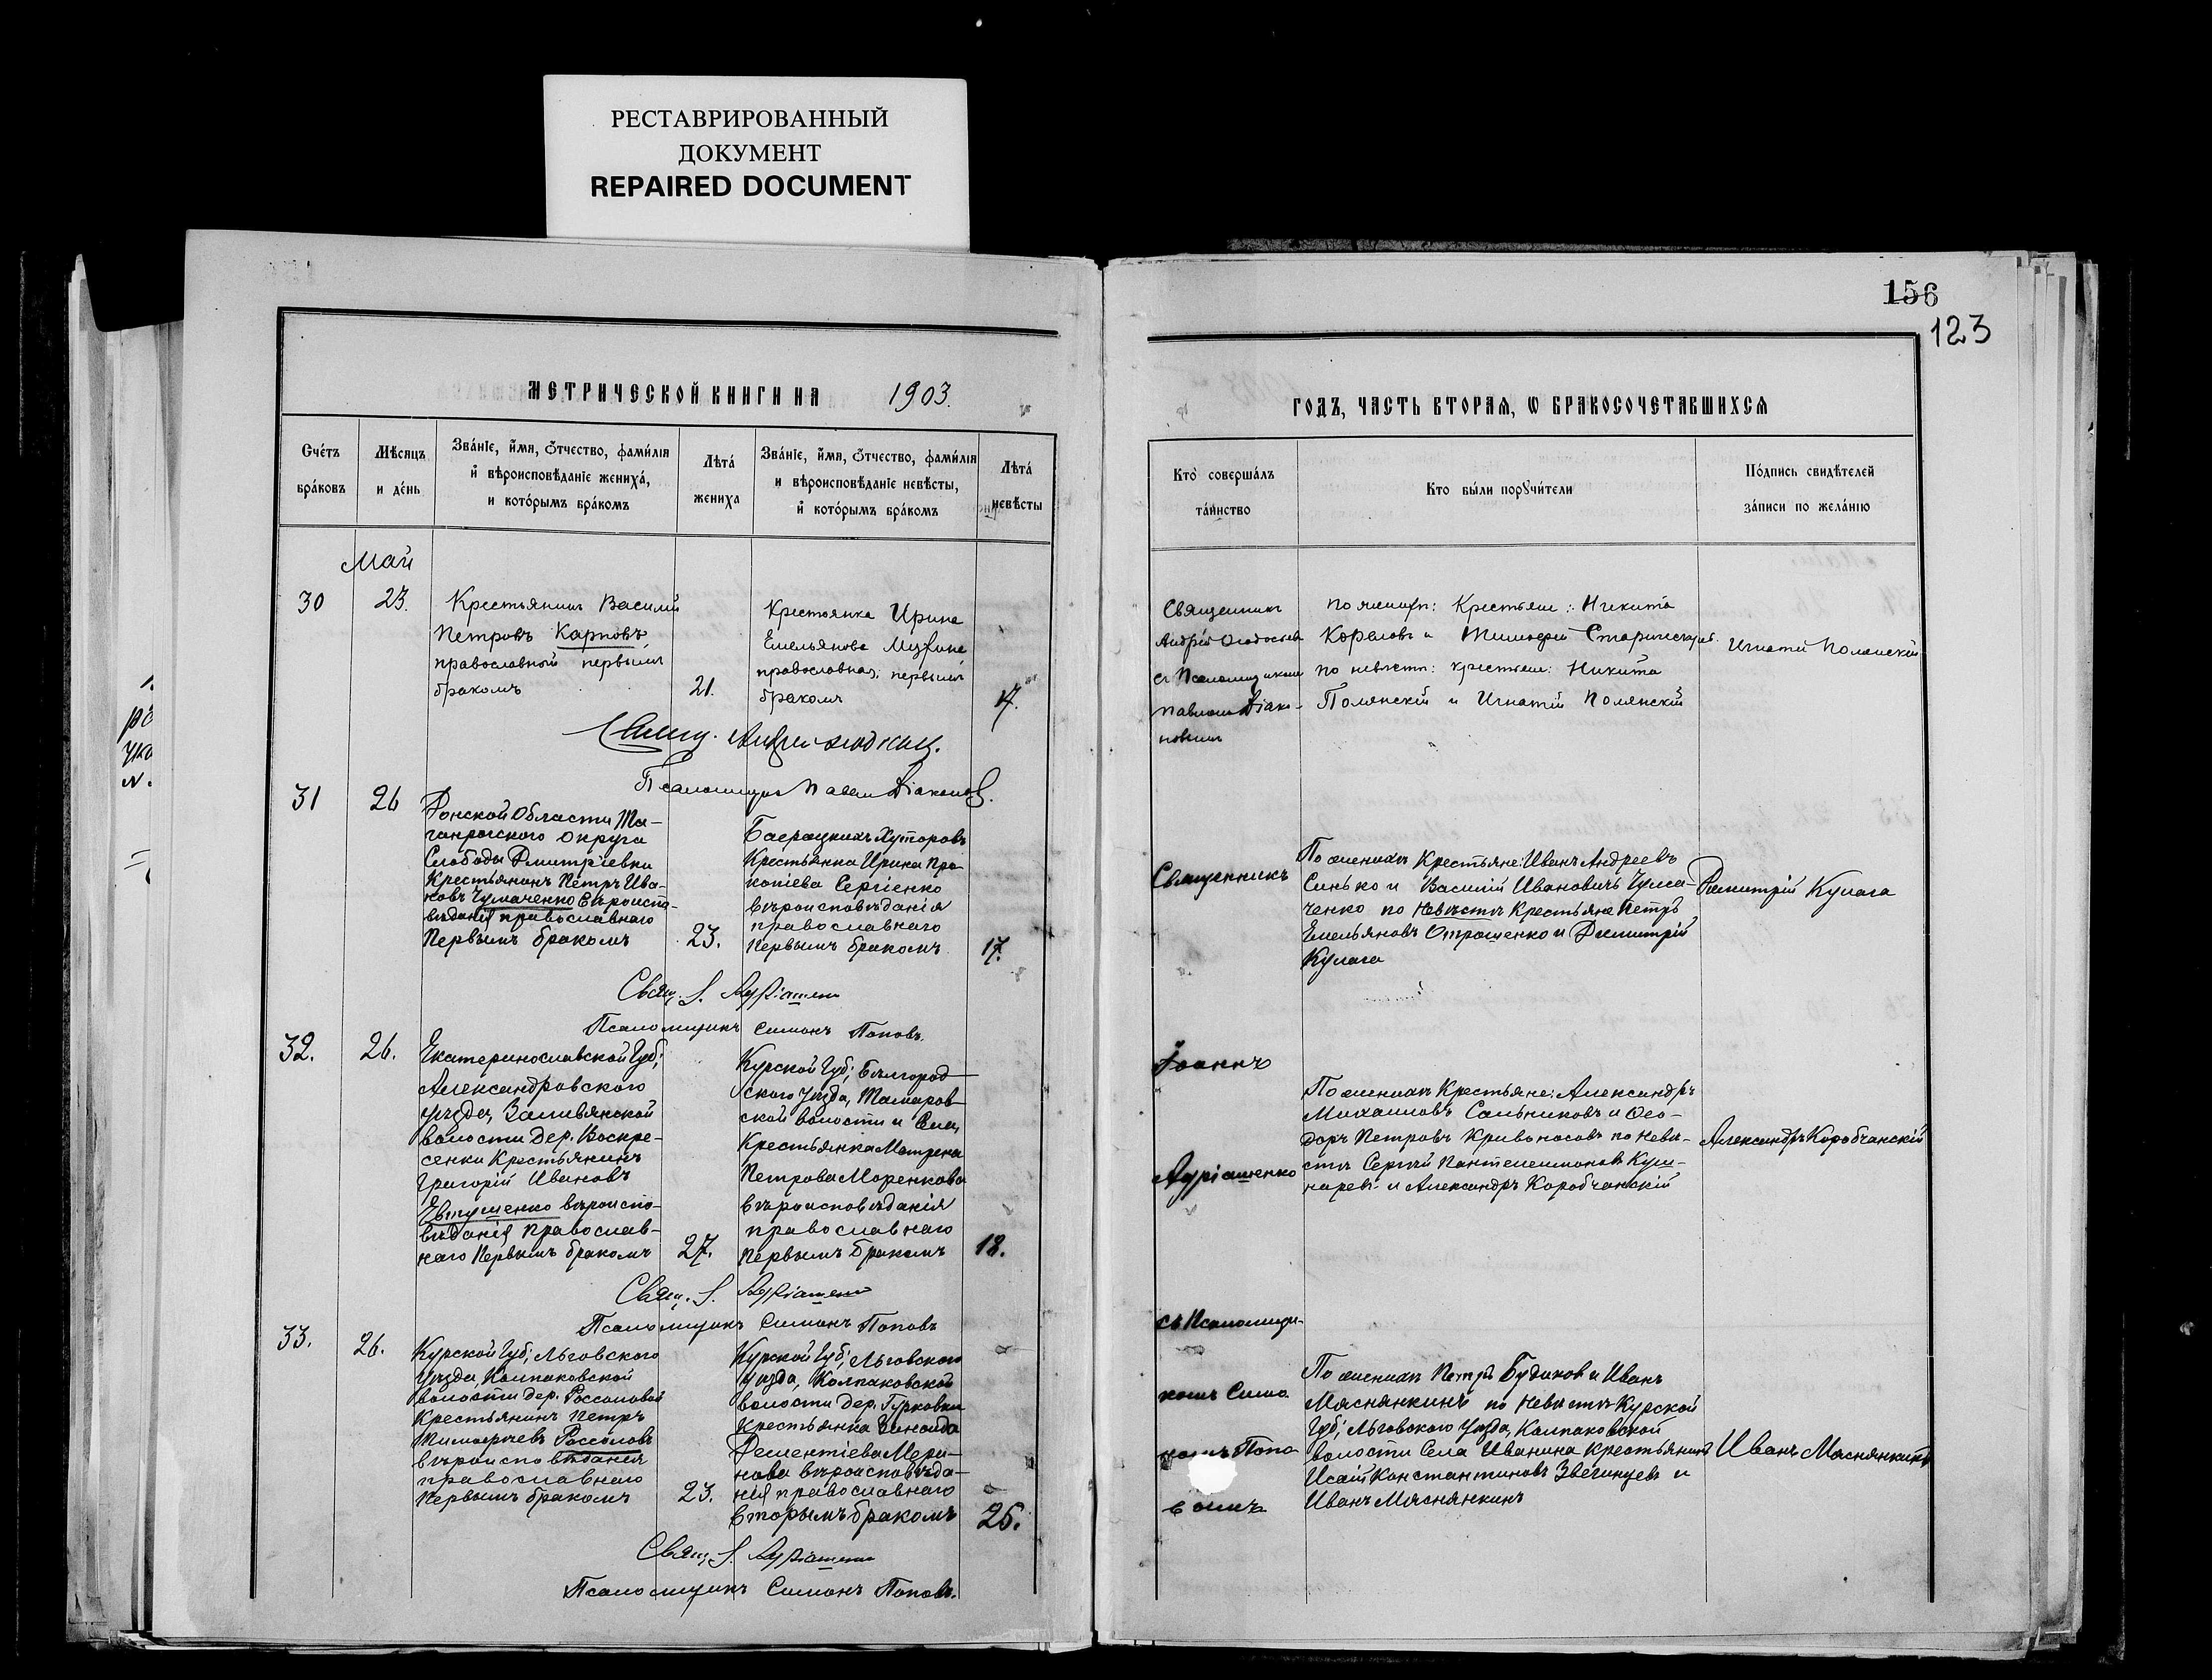 РЕСТАВРИРОВАННЫЙ
ДОКУМЕНТ
REPAIRED DOCUMENT
156
123
МЕТРИЧЕСКОЙ КНИГИ НА 1903.
Счетъ
браковъ
Мѣсяцъ
и день
Званіе, имя, отчество, фамилія
и вѣроисповѣданіе жениха,
и которымъ бракомъ
Лѣта
жениха
Званіе, имя, отчество, фамилія
и вѣроисповѣданіе невѣсты,
и которымъ бракомъ
Лѣта
невѣсты
Май
30
23.
Крестьянинъ Василій
Петровъ Карповъ
православный первымъ
бракомъ
21.
Крестьянка Ирина
Емельянова
православная, первымъ
бракомъ
17.
Псаломщикъ Павелъ Діаконовъ.
31
26
Донской Области Та-
ганрогскаго округа
Слободы Дмитріевки
Крестьянинъ Петръ Ива-
новъ Чумаченко Вѣроиспо-
вѣданія православнаго
Первымъ бракомъ
23.
Баерацкихъ Хуторовъ
Крестьянка Ирина Про-
копіева Сергіенко
вѣроисповѣданія
православнаго
первымъ бракомъ
17.
Свящ. І.
Псаломщикъ Симонъ Поповъ.
32.
26.
Екатеринославской Губ;
Александровскаго
уѣзда,
волости Дер. Воскре-
сенки Крестьянинъ
Григорій Ивановъ
Евтушенко вѣроиспо-
вѣданія Православ-
наго Первымъ бракомъ
27.
Курской Губ; Бѣлгород-
скаго Уѣзда, Томаров-
ской волости и Села,
Крестьянка Матрена
Петрова Моренкова
вѣроисповѣданія
православнаго
Первымъ Бракомъ
18.
Свящ. І.
Псаломщикъ Симонъ Поповъ
33.
26.
Курской Губ; Льговскаго
Уѣзда, Колпаковской
волости дер. Россоловой
Крестьянинъ Петръ
Тимофѣевъ Россоловъ
вѣроисповѣданія
православнаго
Первымъ бракомъ
23.
Курской Губ; Льговскаго
Уѣзда, Колпаковской
волости Дер. Гурковки
Крестьянка Зинаида
Дементіева Мери-
нова вѣроисповѣда-
нія православнаго
вторымъ бракомъ
25.
Свящ. І.
Псаломщикъ Симонъ Поповъ.
ГОДЪ, ЧАСТЬ ВТОРАЯ, О БРАКОСОЧЕТАВШИХСЯ
Кто совершалъ
таинство
Кто были поручители
Подпись свидѣтелей
записи по желанію
Священникъ
Андрей
съ Псаломщикомъ
Павломъ Діако-
новымъ
по жениху: Крестьяне: Никита
и Тимофей
по невѣстѣ: крестьяне: Никита
Полянскій и Игнатій Полянскій
Игнатій Полянскій
Священникъ
По женихѣ Крестьяне: Иванъ Андреевъ
Синько и Василій Ивановичъ Чума-
ченко по Невѣстѣ Крестьяне Петръ
Емельяновъ Отрошенко и Димитрій
Кулага
Димитрій Кулага
Іоаннъ
По женихѣ Крестьяне: Александръ
Михаиловъ Сальниковъ и Ѳео-
доръ Петровъ Кривоносовъ по Невѣ-
стѣ Сергѣй Пантелеимоновъ Куш-
наревъ и Александръ Коробчанскій
Александръ Коробчанскій
съ Псаломщи-
комъ Симо
номъ Попо
вымъ
По женихѣ Петръ Будиковъ и Иванъ
Мяснянкинъ по Невѣстѣ Курской
Губ; Льговскаго Уѣзда, Колпаковской
волости Села Иванина Крестьянинъ
Исаій Константиновъ Звегинцевъ и
Иванъ Мяснянкинъ
Иванъ Мяснянкинъ